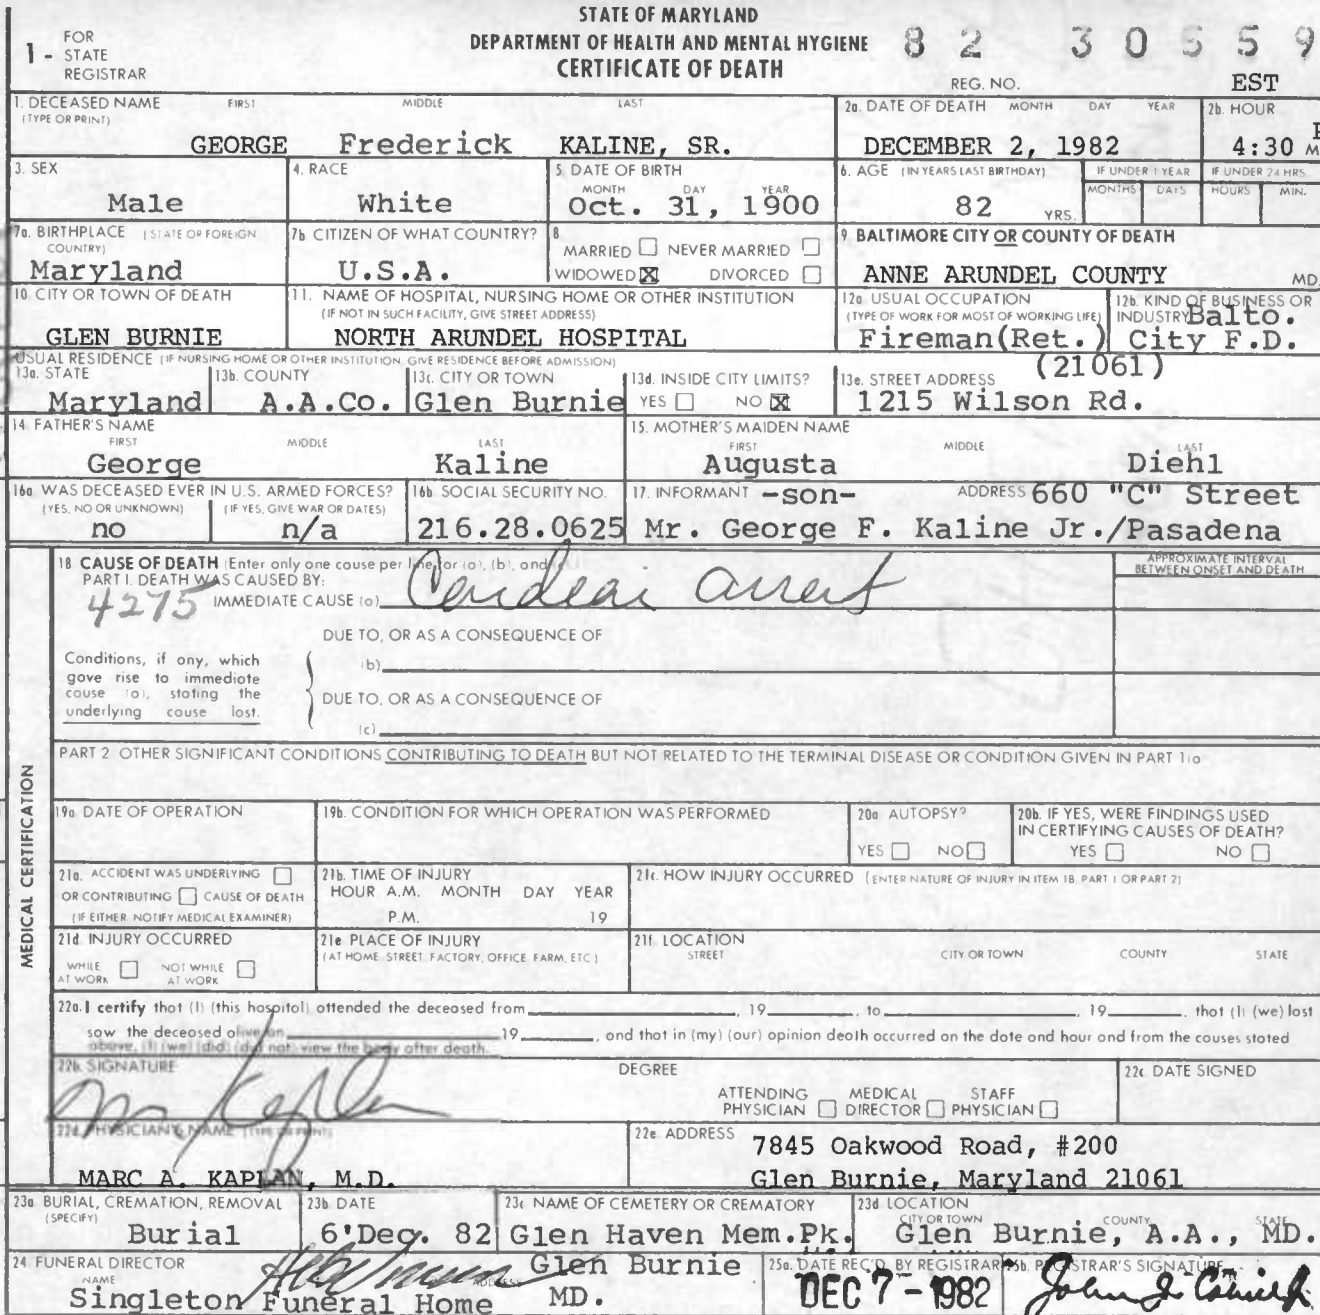 STATE OF MARYLAND
DEPARTMENT OF HEALTH AND MENTAL HYGIENE
CERTIFICATE OF DEATH
1 - FOR STATE REGISTRAR
82 30559
REG. NO. EST
1. DECEASED NAME FIRST MIDDLE LAST
(TYPE OR PRINT)
GEORGE Frederick KALINE, SR.
2a. DATE OF DEATH MONTH DAY YEAR
DECEMBER 2, 1982
2b. HOUR
4:30 P M
3. SEX
Male
4. RACE
White
5 DATE OF BIRTH
MONTH DAY YEAR
Oct. 31, 1900
6. AGE (IN YEARS LAST BIRTHDAY)
82 YRS.
IF UNDER 1 YEAR
MONTHS DAYS
IF UNDER 24 HRS
HOURS MIN.
7a. BIRTHPLACE (STATE OR FOREIGN COUNTRY)
Maryland
7b CITIZEN OF WHAT COUNTRY?
U.S.A.
8
MARRIED NEVER MARRIED
WIDOWED X DIVORCED
9. BALTIMORE CITY OR COUNTY OF DEATH
ANNE ARUNDEL COUNTY MD.
10 CITY OR TOWN OF DEATH
GLEN BURNIE
11. NAME OF HOSPITAL, NURSING HOME OR OTHER INSTITUTION
(IF NOT IN SUCH FACILITY, GIVE STREET ADDRESS)
NORTH ARUNDEL HOSPITAL
12a USUAL OCCUPATION
(TYPE OF WORK FOR MOST OF WORKING LIFE)
Fireman(Ret.)
12b. KIND OF BUSINESS OR INDUSTRY
Balto.
City F.D.
USUAL RESIDENCE (IF NURSING HOME OR OTHER INSTITUTION GIVE RESIDENCE BEFORE ADMISSION)
13a. STATE
Maryland
13b. COUNTY
A.A.Co.
13c. CITY OR TOWN
Glen Burnie
13d. INSIDE CITY LIMITS?
YES NO X
13e. STREET ADDRESS (21061)
1215 Wilson Rd.
14. FATHER'S NAME
FIRST MIDDLE LAST
George Kaline
15. MOTHER'S MAIDEN NAME
FIRST MIDDLE LAST
Augusta Diehl
16a WAS DECEASED EVER IN U.S. ARMED FORCES?
(YES, NO OR UNKNOWN) (IF YES, GIVE WAR OR DATES)
no n/a
16b SOCIAL SECURITY NO.
216.28.0625
17. INFORMANT -son- ADDRESS 660 "C" Street
Mr. George F. Kaline Jr./Pasadena
MEDICAL CERTIFICATION
18 CAUSE OF DEATH (Enter only one cause per line for (a), (b), and
PART I. DEATH WAS CAUSED BY:
4275 IMMEDIATE CAUSE (a) Cardiac arrest
APPROXIMATE INTERVAL BETWEEN ONSET AND DEATH
DUE TO, OR AS A CONSEQUENCE OF
(b)
Conditions, if any, which
gave rise to immediate
cause (a), stating the
underlying cause last.
DUE TO, OR AS A CONSEQUENCE OF
(c)
PART 2 OTHER SIGNIFICANT CONDITIONS CONTRIBUTING TO DEATH BUT NOT RELATED TO THE TERMINAL DISEASE OR CONDITION GIVEN IN PART 1(a
19a DATE OF OPERATION
19b. CONDITION FOR WHICH OPERATION WAS PERFORMED
20a AUTOPSY?
YES NO
20b. IF YES, WERE FINDINGS USED
IN CERTIFYING CAUSES OF DEATH?
YES NO
21a. ACCIDENT WAS UNDERLYING
OR CONTRIBUTING CAUSE OF DEATH
(IF EITHER NOTIFY MEDICAL EXAMINER)
21b. TIME OF INJURY
HOUR A.M. MONTH DAY YEAR
P.M. 19
21c. HOW INJURY OCCURRED (ENTER NATURE OF INJURY IN ITEM 18 PART 1 OR PART 2)
21d INJURY OCCURRED
WHILE AT WORK NOT WHILE AT WORK
21e PLACE OF INJURY
(AT HOME STREET FACTORY, OFFICE FARM, ETC)
21f. LOCATION
STREET CITY OR TOWN COUNTY STATE
22a. I certify that (I) (this hospital) attended the deceased from , 19 , to , 19 , that (I) (we) last
saw the deceased alive on 19 , and that in (my) (our) opinion death occurred on the date and hour and from the causes stated
above, (I) (we) (did) (did not) view the body after death.
22b. SIGNATURE
M Kaplan
DEGREE
ATTENDING PHYSICIAN MEDICAL DIRECTOR STAFF PHYSICIAN
22c DATE SIGNED
22d. PHYSICIAN'S NAME (TYPE OR PRINT)
MARC A. KAPLAN, M.D.
22e. ADDRESS
7845 Oakwood Road, #200
Glen Burnie, Maryland 21061
23a BURIAL, CREMATION, REMOVAL
(SPECIFY)
Burial
23b DATE
6 Dec. 82
23c NAME OF CEMETERY OR CREMATORY
Glen Haven Mem.Pk.
23d LOCATION
CITY OR TOWN COUNTY STATE
Glen Burnie, A.A., MD.
24 FUNERAL DIRECTOR
NAME ADDRESS
Singleton Funeral Home
Glen Burnie
MD.
25a. DATE REC'D. BY REGISTRAR
DEC 7 - 1982
25b. REGISTRAR'S SIGNATURE